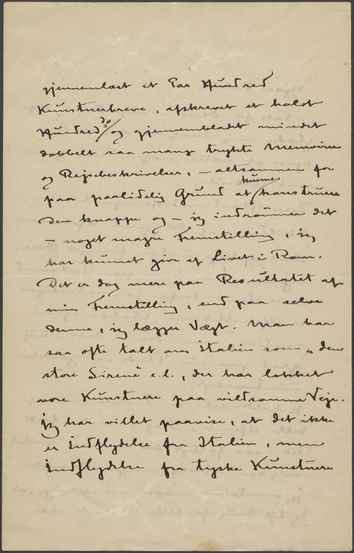 gjennemlæst et Par Hundred
Kunstnerbreve, afskrevet et halvt
Hundred do/ og gjennembladet mindst
dobbelt saa mange trykte Memoirer
og Rejsebeskrivelser, – altsammen for
paa paalidelig Grund at kunne konstruere
den knappe og – jeg indrømmer det
– noget magre Fremstilling, jeg
har kunnet give af Livet i Rom.
Det er dog mere paa Resultatet af
min Fremstilling, end paa selve
denne, jeg lægger Vægt. Man har
saa ofte talt om Italien som „den
store Sirene" e.l., der har lokket
vore Kunstnere paa vildsomme Veje.
Jeg har villet paavise, at det ikke
er Indflydelse fra Italien, men
Indflydelse fra tyske Kunstnere